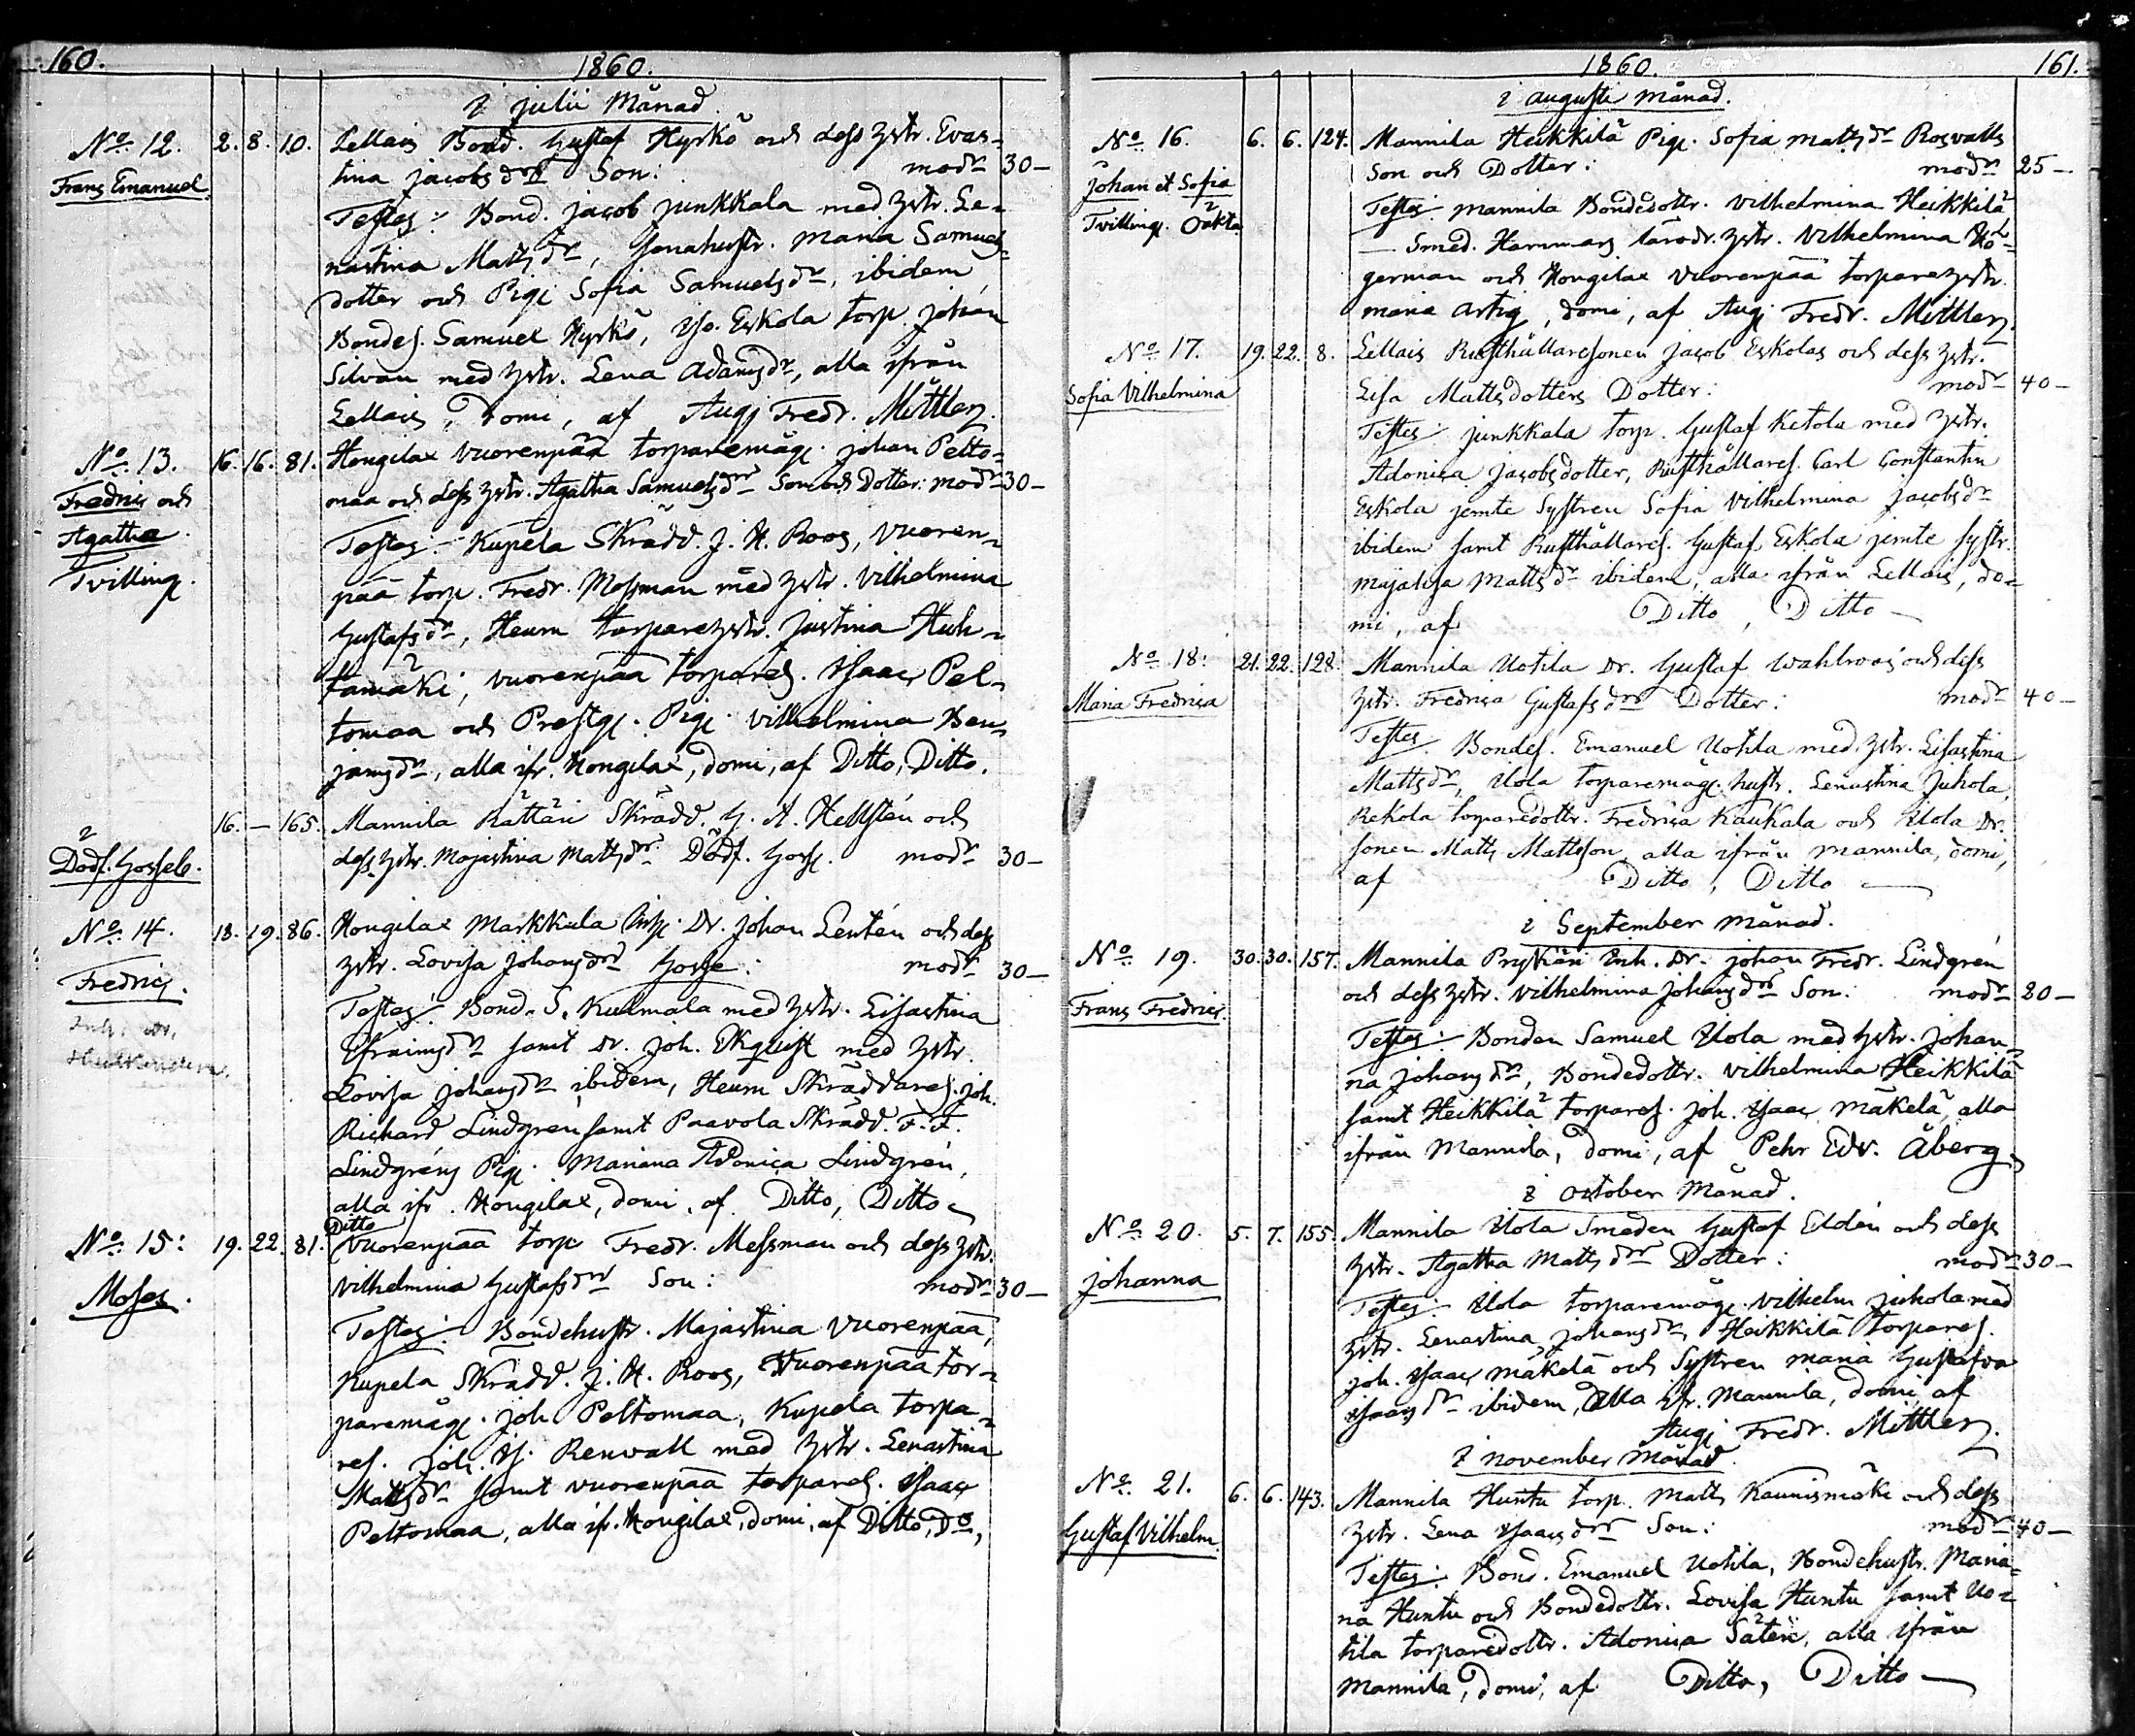 160.
1860.
i julii Månad.
No. 12. 2. 8. 10. Lellais Bond. Gustaf Hyrkö och dess hstr. Evas-
Frans Emanuel tina Jacobsdrs Son: modr 30—
Testes: Bond. Jacob Junkkala med hstr. Le-
nastina Mattsdr, hustr. Maria Samuels-
dotter och Pig. Sofia Samuelsdr, ibidem
Bondes. Samuel Hyrkö, Eskola torp. Johan
Silvan med hstr. Lena Adamsdr, alla ifrån
Lellais, domi, af Augi Fredr. Mittler.
No. 13. 16. 16. 81. Hongilax Vuorenpää torparemåg. Johan Pelto-
Fredric och maa och dess hstr. Agatha Samuelsdrs Son och Dotter: modr 30—
Agatha. Testes: Kupela Skrädd. J. H. Roos, Vuoren-
Tvilling. pää torp. Fredr. Messman med hstr. Vilhelmina
Gustafsdr, Heum torparehstr. Justina Huh-
tamäki, Vuorenpää torpares. Isaac Pel-
tomaa och Prestg. Pig. Vilhelmina Ben-
jamsdr, alla ifr. Hongilax, domi, af Ditto, Ditto.
16. — 165. Mannila Rättäri Skrädd. G. A. Hellstén och
Dödf. Gosseb. dess hstr. Majastina Mattsdrs Dödf. Goss. modr 30—
No. 14. 18. 19. 86. Hongilax Markkula Inh. Dr. Johan Lentén och dess
Fredric. hstr. Lovisa Johansdrs Gosse: modr 30—
Inh. Dr. Testes: Bond. S. Kulmala med hstr. Lisastina
Efraimsdr samt Dr. Joh. Ekquist med hstr.
Lovisa Johansdr ibidem, Heum Skräddares. Joh.
Richard Lindgren samt Paavola Skrädd. F. F.
Lindgréns Pig. Mariana Adonica Lindgrén,
alla ifr. Hongilax, domi, af Ditto, Ditto
Ditto
No. 15: 19. 22. 81. Vuorenpää torp. Fredr. Messman och dess hstr.
Moses. Vilhelmina Gustafsdrs Son: modr 30—
Testes: Bondehustr. Majastina Vuorenpää,
Kupela Skrädd. J. H. Roos, Vuorenpää tor-
paremåg. Joh Peltomaa, Kupela torpa-
res. Joh. Is. Renvall med hstr. Lenastina
Mattsdr samt Vuorenpää torpares. Isaac
Peltomaa, alla ifr. Hongilax, domi, af Ditto, Do,
1860. 161.
i augusti månad.
No. 16. 6. 6. 124. Mannila Heikkilä Pig. Sofia Mattsdr Rosvalls
Johan et Sofia Son och Dotter: modr 25—
Tvilling. Oäkta Testes: Mannila Bondedottr. Vilhelmina Heikkilä
— Smed. Hammars lärodr. hstr. Vilhelmina Hö-
german och Hongilax Vuorenpää torparehstr.
Maria Artig, domi, af Augi Fredr. Mittler.
No. 17. 19. 22. 8. Lellais Rusthållaresonen Jacob Eskolas och dess hstr.
Sofia Vilhelmina Lisa Mattsdotters Dotter: modr 40—
Testes: Junkkala torp. Gustaf Ketola med hstr.
Adonica Jacobsdotter, Rusthållares. Carl Constantin
Eskola jemte Systren Sofia Vilhelmina Jacobsdr
ibidem samt Rusthållares. Gustaf Eskola jemte systr.
Majalisa Mattsdr ibidem, alla ifrån Lellais, do-
mi, af Ditto, Ditto —
No. 18: 21. 22. 128. Mannila Uotila Dr. Gustaf Wahlroos och dess
Maria Fredrica hstr. Fredrica Gustafsdrs Dotter: modr 40—
Testes: Bondes. Emanuel Uotila med hstr. Lisastina
Mattsdr, Uola torparemåg. hustr. Lenastina Juhola,
Rekola torparedottr. Fredrica Kaukala och Uola Dr.
sonen Matts Mattsson, alla ifrån Mannila, domi,
af Ditto, Ditto —
i September månad.
No. 19. 30. 30. 157. Mannila Prykäri Inh. Dr. Johan Fredr. Lindgrén
Frans Fredric. och dess hstr. Vilhelmina Johansdrs Son: modr 20—
Testes: Bonden Samuel Uola med hstr. Johan-
na Johansdr, Bondedottr. Vilhelmina Heikkilä
samt Heikkilä torpares. Joh. Isaac Mäkelä, alla
ifrån Mannila, domi, af Pehr Edv. Åberg.
i October Månad.
No. 20. 5. 7. 155. Mannila Uola Smeden Gustaf Eldén och dess
Johanna hstr. Agatha Mattsdrs Dotter: modr 30—
Testes: Uola torparemåg. Vilhelm Juhola med
hstr. Lenastina Johansdr, Heikkilä torpares.
Joh. Isaac Mäkelä och Systren Maria Gustafva
Isaacsdr ibidem, alla ifr. Mannila, domi af
Augi Fredr. Mittler.
i november Månad.
No. 21. 6. 6. 143. Mannila Huntu torp. Matts Kaunismäki och dess
Gustaf Vilhelm. hstr. Lena Isaacsdrs Son: modr 40—
Testes: Bond. Emanuel Uotila, Bondehustr. Maria-
na Huntu och Bondedottr. Lovisa Huntu samt Uo-
tila torparedottr. Adonica Säteri, alla ifrån
Mannila, domi, af Ditto, Ditto —